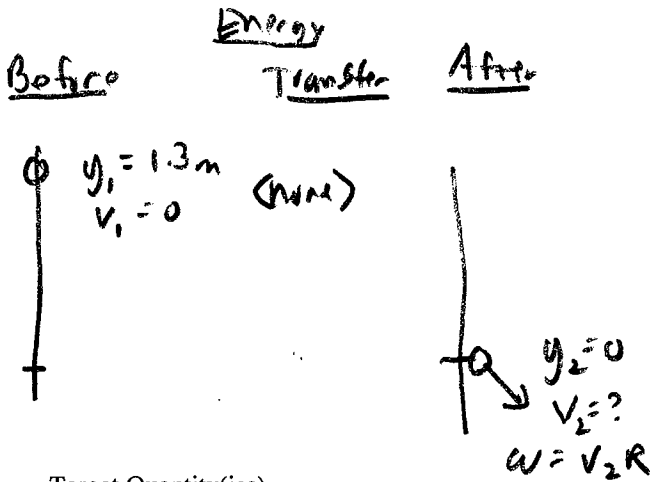 Energy
Before Transfer After
y₁ = 1.3 m
v₁ = 0
(none)
y₂ = 0
v₂ = ?
ω = v₂ R
Target Quantity(ies)